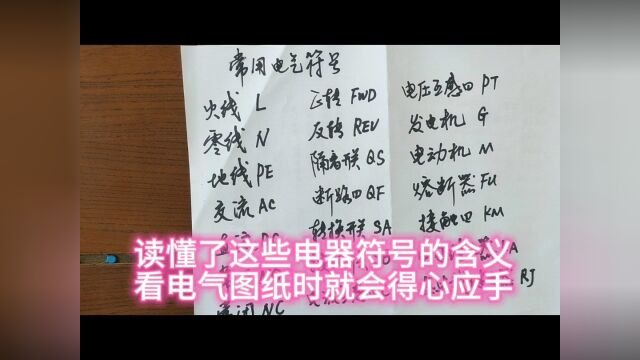 常用电气符号
火线 L
零线 N
地线 PE
交流 AC
NC
正转 FWD
反转 REV
隔离开关 QS
断路器 QF
转换开关 SA
电压互感器 PT
发电机 G
电动机 M
熔断器 FU
接触器 KM
RJ
读懂了这些电器符号的含义
看电气图纸时就会得心应手